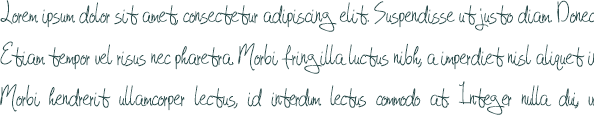 Lorem ipsum dolor sit amet consectetur adipiscing elit. Suspendisse ut justo diam. Donec
Etiam tempor vel risus nec pharetra. Morbi fringilla luctus nibh, a imperdiet nisl aliquet
Morbi hendrerit ullamcorper lectus, id interdum lectus commodo at. Integer nulla dui,